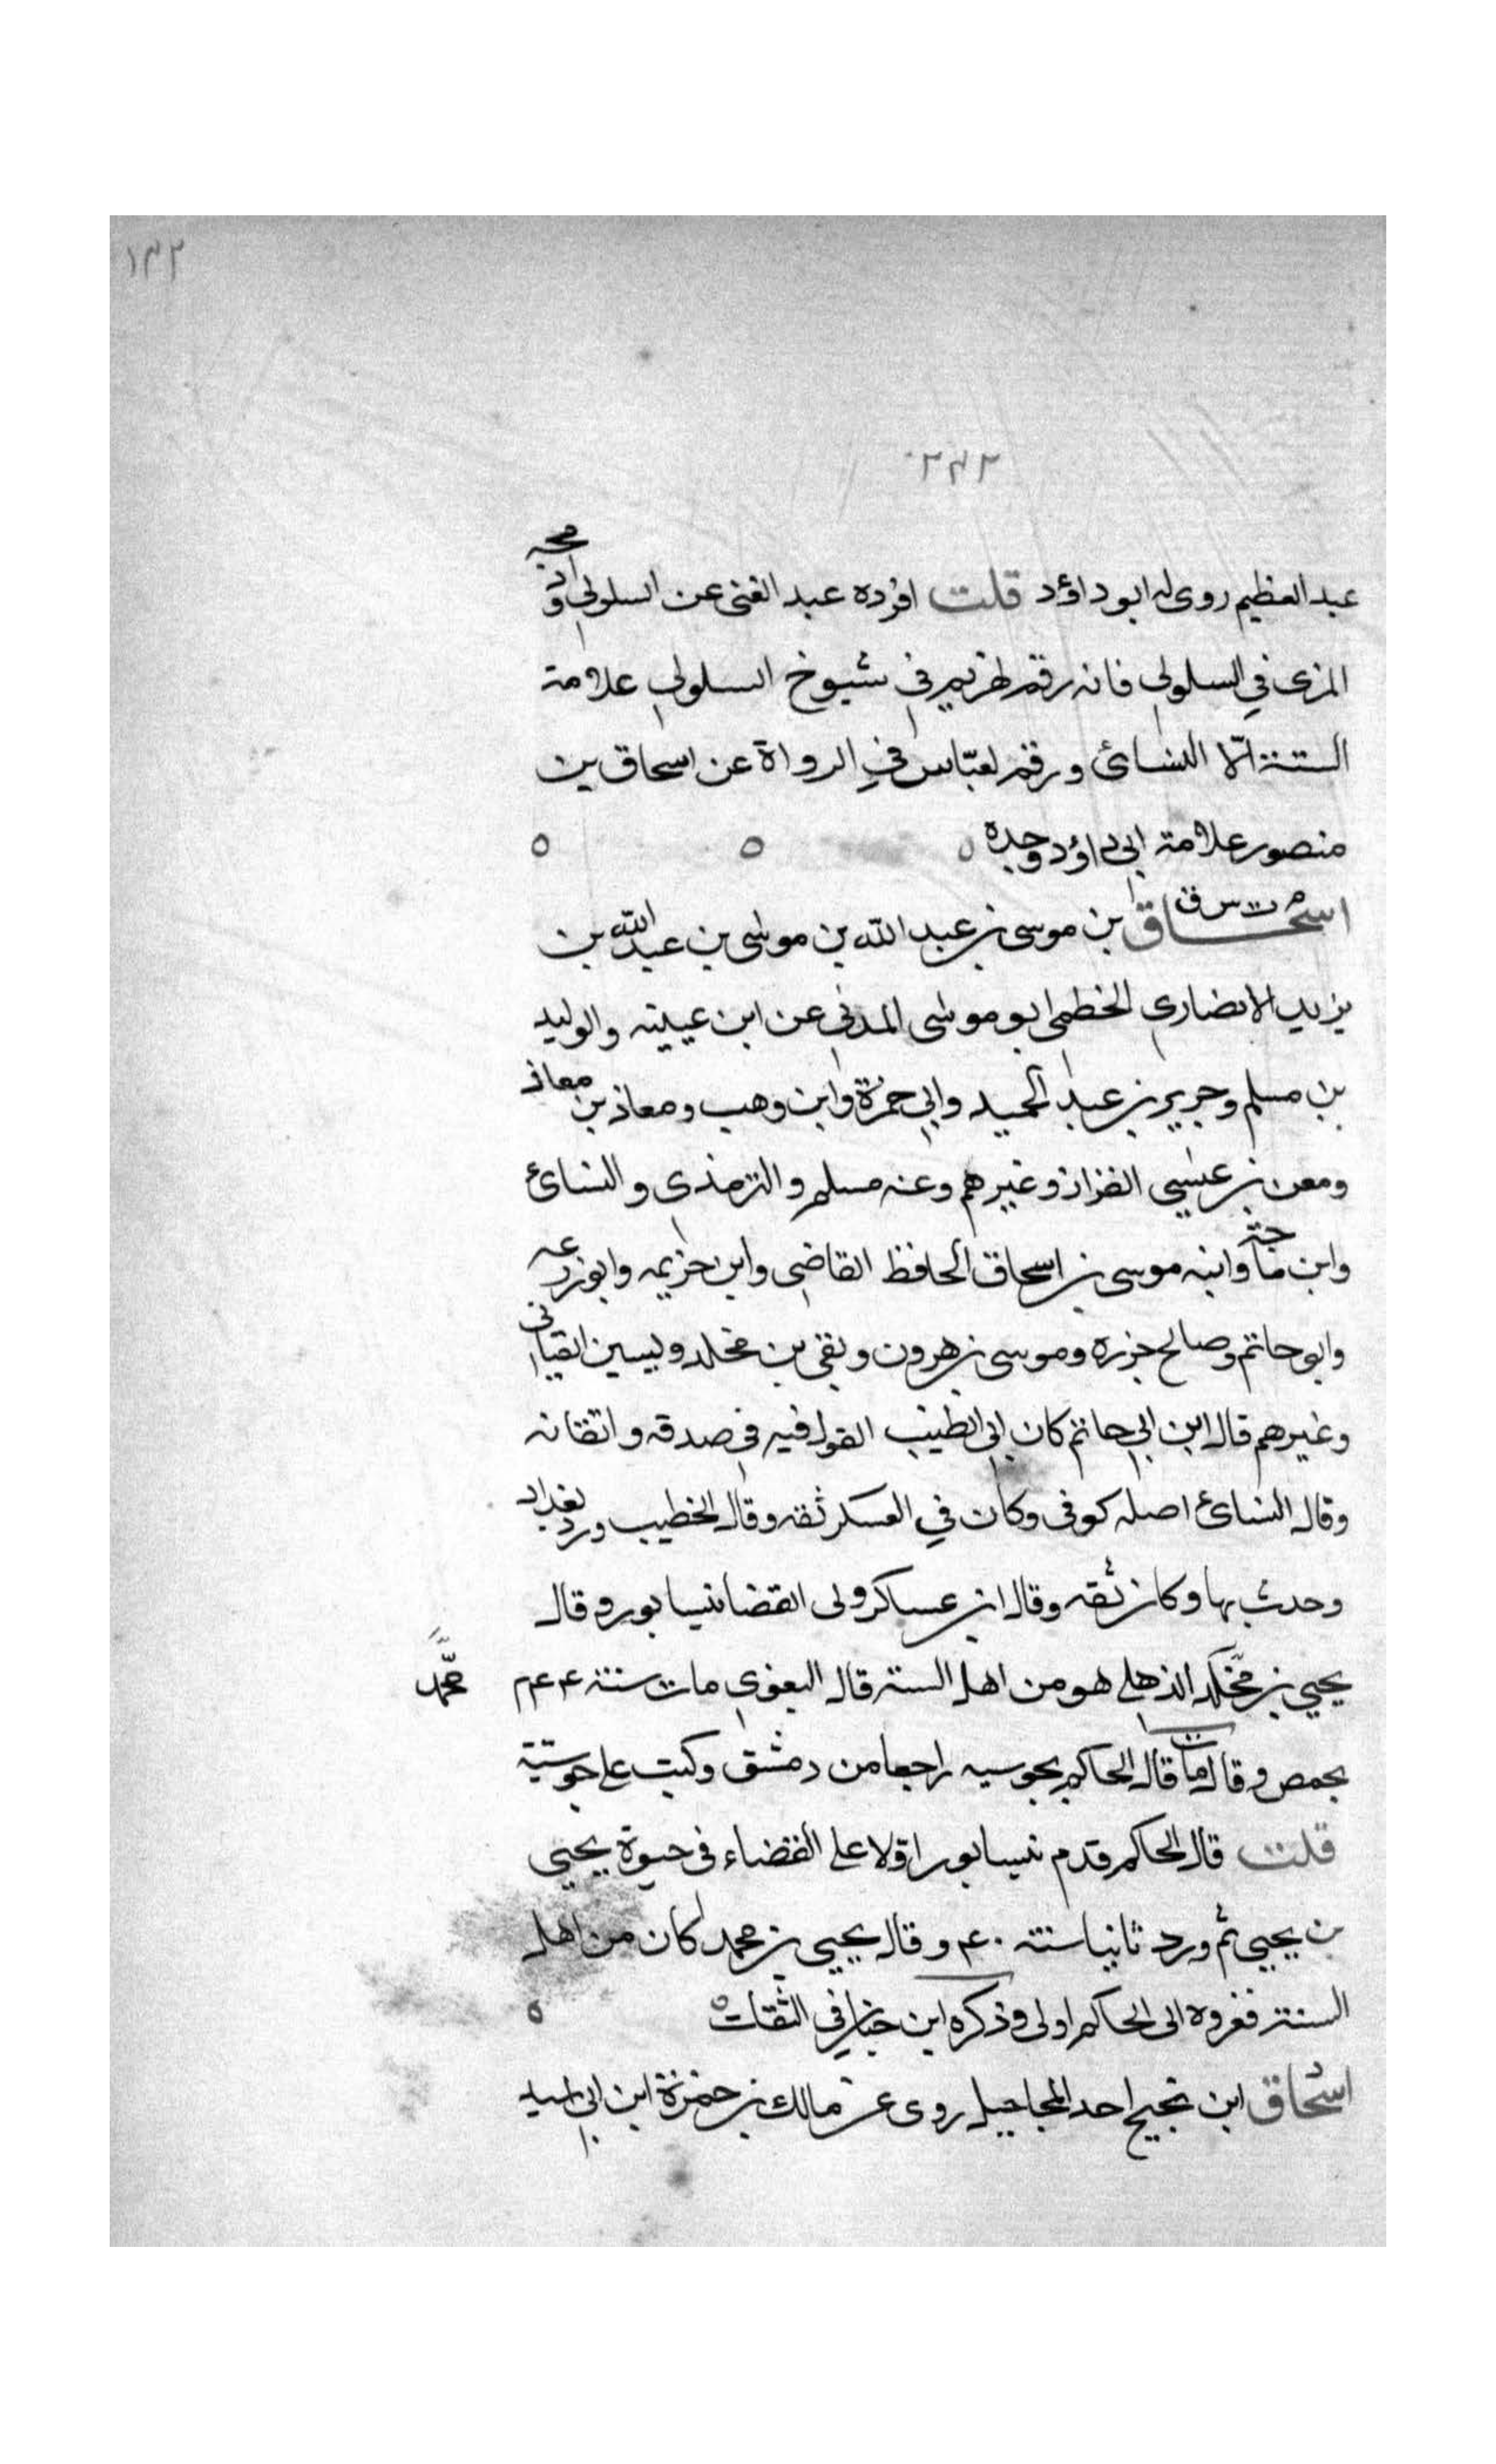 ١٣٢
٢٣٢
عبد العظيم روى له ابو داؤد قلت افرده عبد الغنى عن السلولى وادمجه
المزى في السلولى فانه رقم لهريم فى شيوخ السلولى علامة
الستة الّا النسائى ورقم لعبّاس في الرواة عن اسحاق بن
منصور علامة ابى داؤد وحده ٥ ٥ ٥
م ت س ق
اسحاق بن موسى بن عبد الله بن موسى بن عبد الله بن
يزيد الانصارى الخطمى ابو موسى المدنى عن ابن عيينه والوليد
بن مسلم وجرير بن عبد الحميد وابى حمزة وابن وهب ومعاذ بن معاذ
ومعن بن عيسى القزاز وغيرهم وعنه مسلم والترمذى والنسائ
وابن ماجة وابنه موسى بن اسحاق الحافظ القاضى وابن خزيمه وابو زرعه
وابو حاتم وصالح جزره وموسى بن هرون وبقى بن مخلد
وغيرهم قال ابن ابى حاتم كان ابى القول فيه فى صدقه واتقانه
وقال النسائ اصله كوفى وكان في العسكر ثقه وقال الخطيب ورد بغداد
وحدث بها وكان ثقه وقال ابن عساكر ولى القضا نيسابور وقال
يحيى بن مخلد الذهلى هو من اهل السنة قال البغوى مات سنة ٢٤٤ محمّد
بحمص وقال مات قال الحاكم بجوسيه راجعا من دمشق وكتب على جوسية
قلت قال الحاكم قدم نيسابور اولا على القضاء فى حيوة يحيى
بن يحيى ثم ورد ثانيا سنة ٢٤٠ وقال يحيى بن محمد كان من اهل
السنة فعزوه الى الحاكم اولى وذكره ابن حبان في الثقات ٥ ٥
اسحاق ابن نجيح احد المجاهيل روى عن مالك بن حمزة ابن ابى اسيد